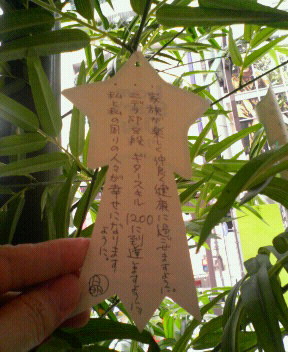 家族が楽しく仲良く健康に過ごせますように。
ギタースキル 1200に到達しますように。
私と私の周りの人々が幸せになります
ように。